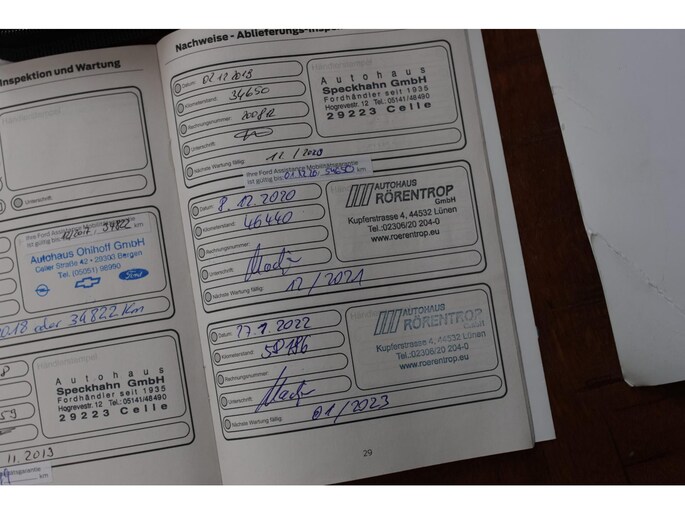 Inspektion und Wartung
Unterschrift:
Ihre Ford Assistance Mobilitätsgarantie
ist gültig bis: 12/2017, 34822 km
Autohaus Ohlhoff GmbH
Celler Straße 42 • 29303 Bergen
Tel. (05051) 98990
Ford
2018 oder 34822 Km
Händlerstempel
Autohaus
Speckhahn GmbH
Fordhändler seit 1935
Hogrevestr. 12 Tel.: 05141/48490
29223 Celle
11.2019
km
Nachweise - Ablieferungs-Inspe
Datum: 02.12.2019
Kilometerstand: 34650
Rechnungsnummer:
Unterschrift:
Nächste Wartung fällig: 12/2020
Autohaus
Speckhahn GmbH
Fordhändler seit 1935
Hogrevestr. 12 Tel.: 05141/48490
29223 Celle
Ihre Ford Assistance Mobilitätsgarantie
ist gültig bis: 01.12.20, 54650 km
Datum: 8.12.2020
Kilometerstand: 46440
Rechnungsnummer:
Unterschrift:
Nächste Wartung fällig: 12/2021
AUTOHAUS
RÖRENTROP
GmbH
Kupferstrasse 4, 44532 Lünen
Tel.:02306/20 204-0
www.roerentrop.eu
Datum: 17.1.2022
Kilometerstand: 58186
Rechnungsnummer:
Unterschrift:
Nächste Wartung fällig: 01/2023
AUTOHAUS
RÖRENTROP
GmbH
Kupferstrasse 4, 44532 Lünen
Tel.:02306/20 204-0
www.roerentrop.eu
29